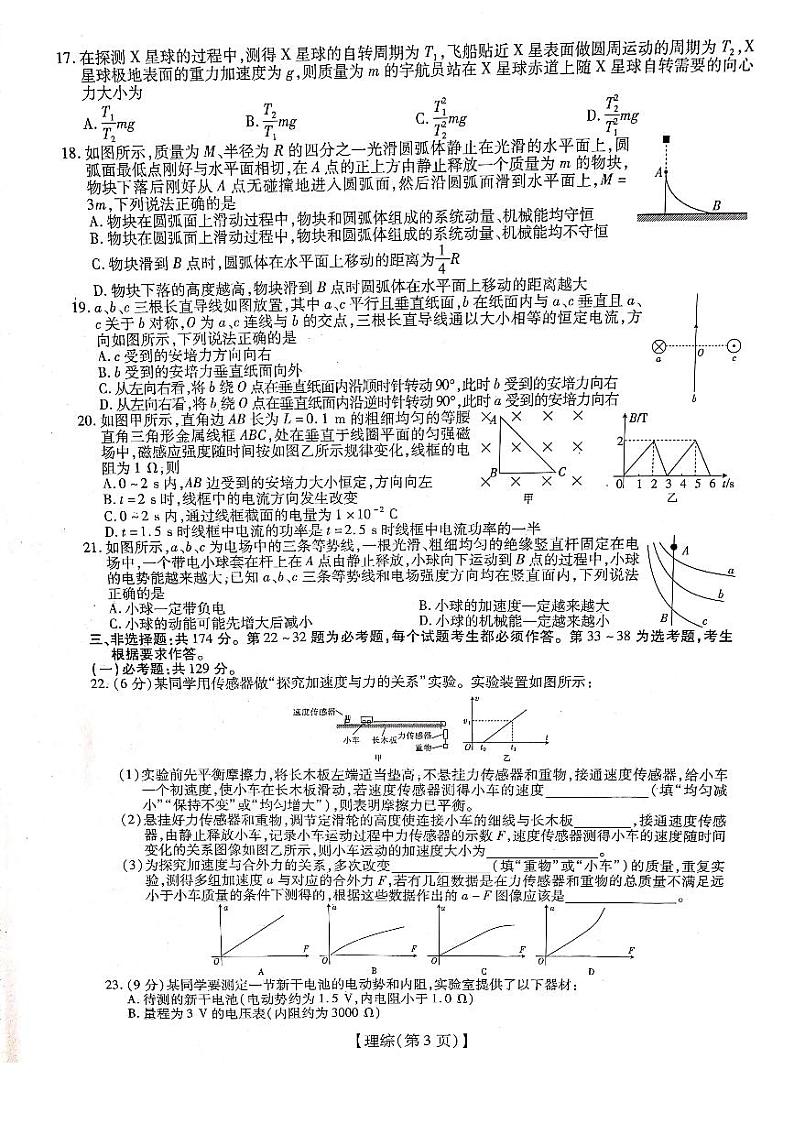 17. 在探测 X 星球的过程中,测得 X 星球的自转周期为 T₁,飞船贴近 X 星表面做圆周运动的周期为 T₂,X
星球极地表面的重力加速度为 g,则质量为 m 的宇航员站在 X 星球赤道上随 X 星球自转需要的向心
力大小为
A. T₁/T₂ mg B. T₂/T₁ mg C. T₁²/T₂² mg D. T₂²/T₁² mg
18. 如图所示,质量为 M、半径为 R 的四分之一光滑圆弧体静止在光滑的水平面上,圆
弧面最低点刚好与水平面相切,在 A 点的正上方由静止释放一个质量为 m 的物块,
物块下落后刚好从 A 点无碰撞地进入圆弧面,然后沿圆弧面滑到水平面上,M =
3m,下列说法正确的是
A. 物块在圆弧面上滑动过程中,物块和圆弧体组成的系统动量、机械能均守恒
B. 物块在圆弧面上滑动过程中,物块和圆弧体组成的系统动量、机械能均不守恒
C. 物块滑到 B 点时,圆弧体在水平面上移动的距离为 1/4 R
D. 物块下落的高度越高,物块滑到 B 点时圆弧体在水平面上移动的距离越大
A
B
19. a、b、c 三根长直导线如图放置,其中 a、c 平行且垂直纸面,b 在纸面内与 a、c 垂直且 a、
c 关于 b 对称,O 为 a、c 连线与 b 的交点,三根长直导线通以大小相等的恒定电流,方
向如图所示,下列说法正确的是
A. c 受到的安培力方向向右
B. b 受到的安培力垂直纸面向外
C. 从左向右看,将 b 绕 O 点在垂直纸面内沿顺时针转动 90°,此时 b 受到的安培力向右
D. 从左向右看,将 b 绕 O 点在垂直纸面内沿逆时针转动 90°,此时 a 受到的安培力向右
a O c
b
20. 如图甲所示,直角边 AB 长为 L = 0.1 m 的粗细均匀的等腰
直角三角形金属线框 ABC,处在垂直于线圈平面的匀强磁
场中,磁感应强度随时间按如图乙所示规律变化,线框的电
阻为 1 Ω;则
A. 0 ~ 2 s 内,AB 边受到的安培力大小恒定,方向向左
B. t = 2 s 时,线框中的电流方向发生改变
C. 0 ~ 2 s 内,通过线框截面的电量为 1 × 10⁻² C
D. t = 1.5 s 时线框中电流的功率是 t = 2.5 s 时线框中电流功率的一半
A
B C
甲
B/T
2
0 1 2 3 4 5 6 t/s
乙
21. 如图所示,a、b、c 为电场中的三条等势线,一根光滑、粗细均匀的绝缘竖直杆固定在电
场中,一个带电小球套在杆上在 A 点由静止释放,小球向下运动到 B 点的过程中,小球
的电势能越来越大;已知 a、b、c 三条等势线和电场强度方向均在竖直面内,下列说法
正确的是
A. 小球一定带负电 B. 小球的加速度一定越来越大
C. 小球的动能可能先增大后减小 D. 小球的机械能一定越来越小
A
a
b
B c
三、非选择题:共 174 分。第 22 ~ 32 题为必考题,每个试题考生都必须作答。第 33 ~ 38 为选考题,考生
根据要求作答。
(一)必考题:共 129 分。
22. (6 分)某同学用传感器做“探究加速度与力的关系”实验。实验装置如图所示:
速度传感器
小车 长木板 力传感器
重物
甲
v
v₁
t₀ t₁ t
乙
(1)实验前先平衡摩擦力,将长木板左端适当垫高,不悬挂力传感器和重物,接通速度传感器,给小车
一个初速度,使小车在长木板滑动,若速度传感器测得小车的速度____________(填“均匀减
小”“保持不变”或“均匀增大”),则表明摩擦力已平衡。
(2)悬挂好力传感器和重物,调节定滑轮的高度使连接小车的细线与长木板________,接通速度传感
器,由静止释放小车,记录小车运动过程中力传感器的示数 F,速度传感器测得小车的速度随时间
变化的关系图像如图乙所示,则小车运动的加速度大小为____________。
(3)为探究加速度与合外力的关系,多次改变____________(填“重物”或“小车”)的质量,重复实
验,测得多组加速度 a 与对应的合外力 F,若有几组数据是在力传感器和重物的总质量不满足远
小于小车质量的条件下测得的,根据这些数据作出的 a - F 图像应该是____________。
a a a a
O F O F O F O F
A B C D
23. (9 分)某同学要测定一节新干电池的电动势和内阻,实验室提供了以下器材:
A. 待测的新干电池(电动势约为 1.5 V,内电阻小于 1.0 Ω)
B. 量程为 3 V 的电压表(内阻约为 3000 Ω)
【理综(第 3 页)】